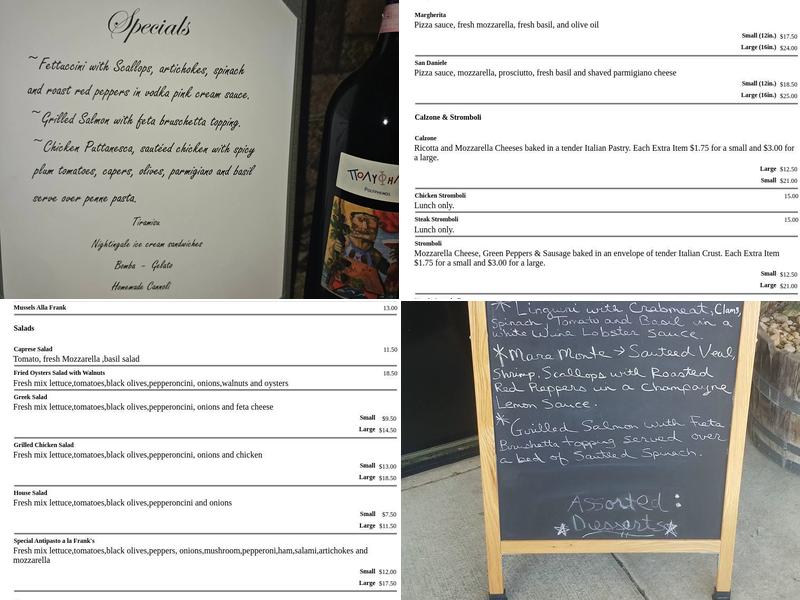 Specials
~Fettuccini with Scallops, artichokes, spinach
and roast red peppers in vodka pink cream sauce.
~Grilled Salmon with feta bruschetta topping.
~Chicken Puttanesca, sautéed chicken with spicy
plum tomatoes, capers, olives, parmigiano and basil
serve over penne pasta.
Tiramisu
Nightingale ice cream sandwiches
Bomba - Gelato
Homemade Cannoli
Margherita
Pizza sauce, fresh mozzarella, fresh basil, and olive oil
Small (12in.) $17.50
Large (16in.) $24.00
San Daniele
Pizza sauce, mozzarella, prosciutto, fresh basil and shaved parmigiano cheese
Small (12in.) $18.50
Large (16in.) $25.00
Calzone & Stromboli
Calzone
Ricotta and Mozzarella Cheeses baked in a tender Italian Pastry. Each Extra Item $1.75 for a small and $3.00 for
a large.
Large $12.50
Small $21.00
Chicken Stromboli 15.00
Lunch only.
Steak Stromboli 15.00
Lunch only.
Stromboli
Mozzarella Cheese, Green Peppers & Sausage baked in an envelope of tender Italian Crust. Each Extra Item
$1.75 for a small and $3.00 for a large.
Small $12.50
Large $21.00
Mussels Alla Frank 13.00
Salads
Caprese Salad 11.50
Tomato, fresh Mozzarella ,basil salad
Fried Oysters Salad with Walnuts 18.50
Fresh mix lettuce,tomatoes,black olives,pepperoncini, onions,walnuts and oysters
Greek Salad
Fresh mix lettuce,tomatoes,black olives,pepperoncini, onions and feta cheese
Small $9.50
Large $14.50
Grilled Chicken Salad
Fresh mix lettuce,tomatoes,black olives,pepperoncini, onions and chicken
Small $13.00
Large $18.50
House Salad
Fresh mix lettuce,tomatoes,black olives,pepperoncini and onions
Small $7.50
Large $11.50
Special Antipasto a la Frank's
Fresh mix lettuce,tomatoes,black olives,peppers, onions,mushroom,pepperoni,ham,salami,artichokes and
mozzarella
Small $12.00
Large $17.50
* Linguini with Crabmeat, Clams,
Spinach, Tomato and Basil in a
white Wine Lobster Sauce.
*Mare Monte → Sauteed Veal,
Shrimp, Scallops with Roasted
Red Peppers in a Champagne
Lemon Sauce.
* Grilled Salmon with Feta
Bruschetta topping served over
a bed of Sautéed Spinach.
Assorted:
*Desserts*